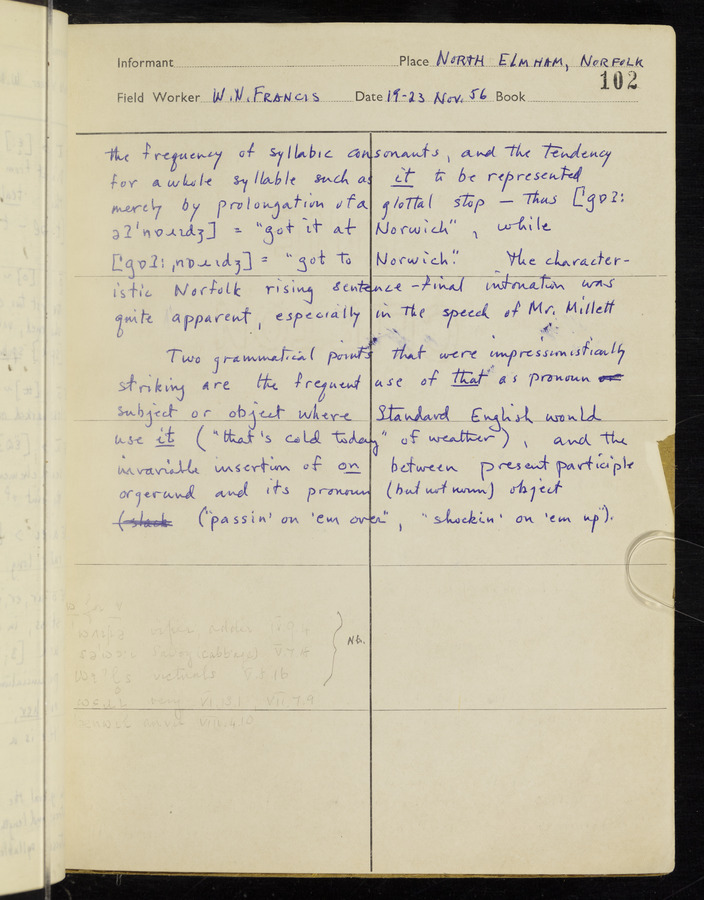 Informant Place NORTH ELMHAM, NORFOLK
102
Field Worker W.N. FRANCIS Date 19-23 Nov. 56 Book
the frequency of syllabic consonants, and the tendency
for a whole syllable such as it to be represented
merely by prolongation of a glottal stop – thus [ˈgɒʔː
əʔˈnɒɹɪdʒ] = "got it at Norwich", while
[ˈgɒʔːˌnɒɹɪdʒ] = "got to Norwich". The character-
istic Norfolk rising sentence-final intonation was
quite apparent, especially in the speech of Mr. Millett
Two grammatical points that were impressionistically
striking are the frequent use of that as pronoun
subject or object where Standard English would
use it ("that's cold today" of weather), and the
invariable insertion of on between present participle
or gerund and its pronoun (but not noun) object
("passin' on 'em over", "shockin' on 'em up").
Nb.